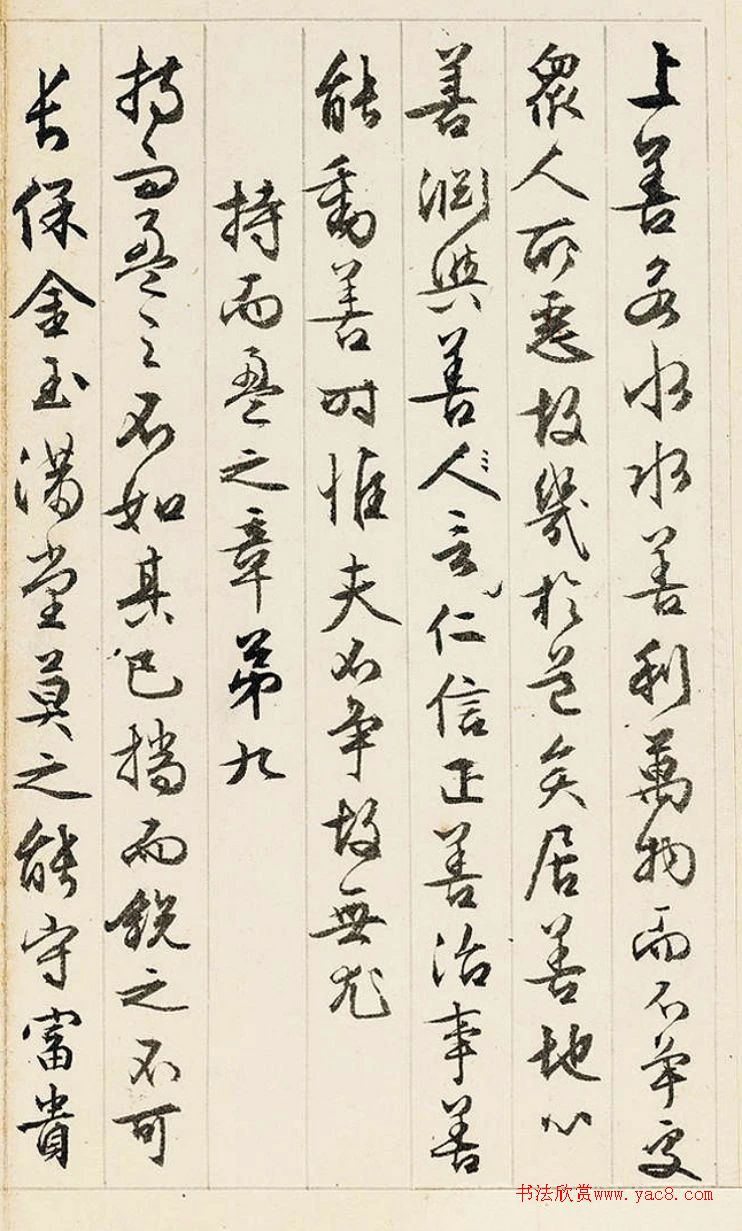 上善若水水善利萬物而不爭處
衆人所惡故幾於道矣居善地心
善淵與善人言仁信正善治事善
能動善時惟夫不爭故無尤
持而盈之章第九
持而盈之不如其已揣而銳之不可
長保金玉滿堂莫之能守富貴
书法欣赏www.yac8.com